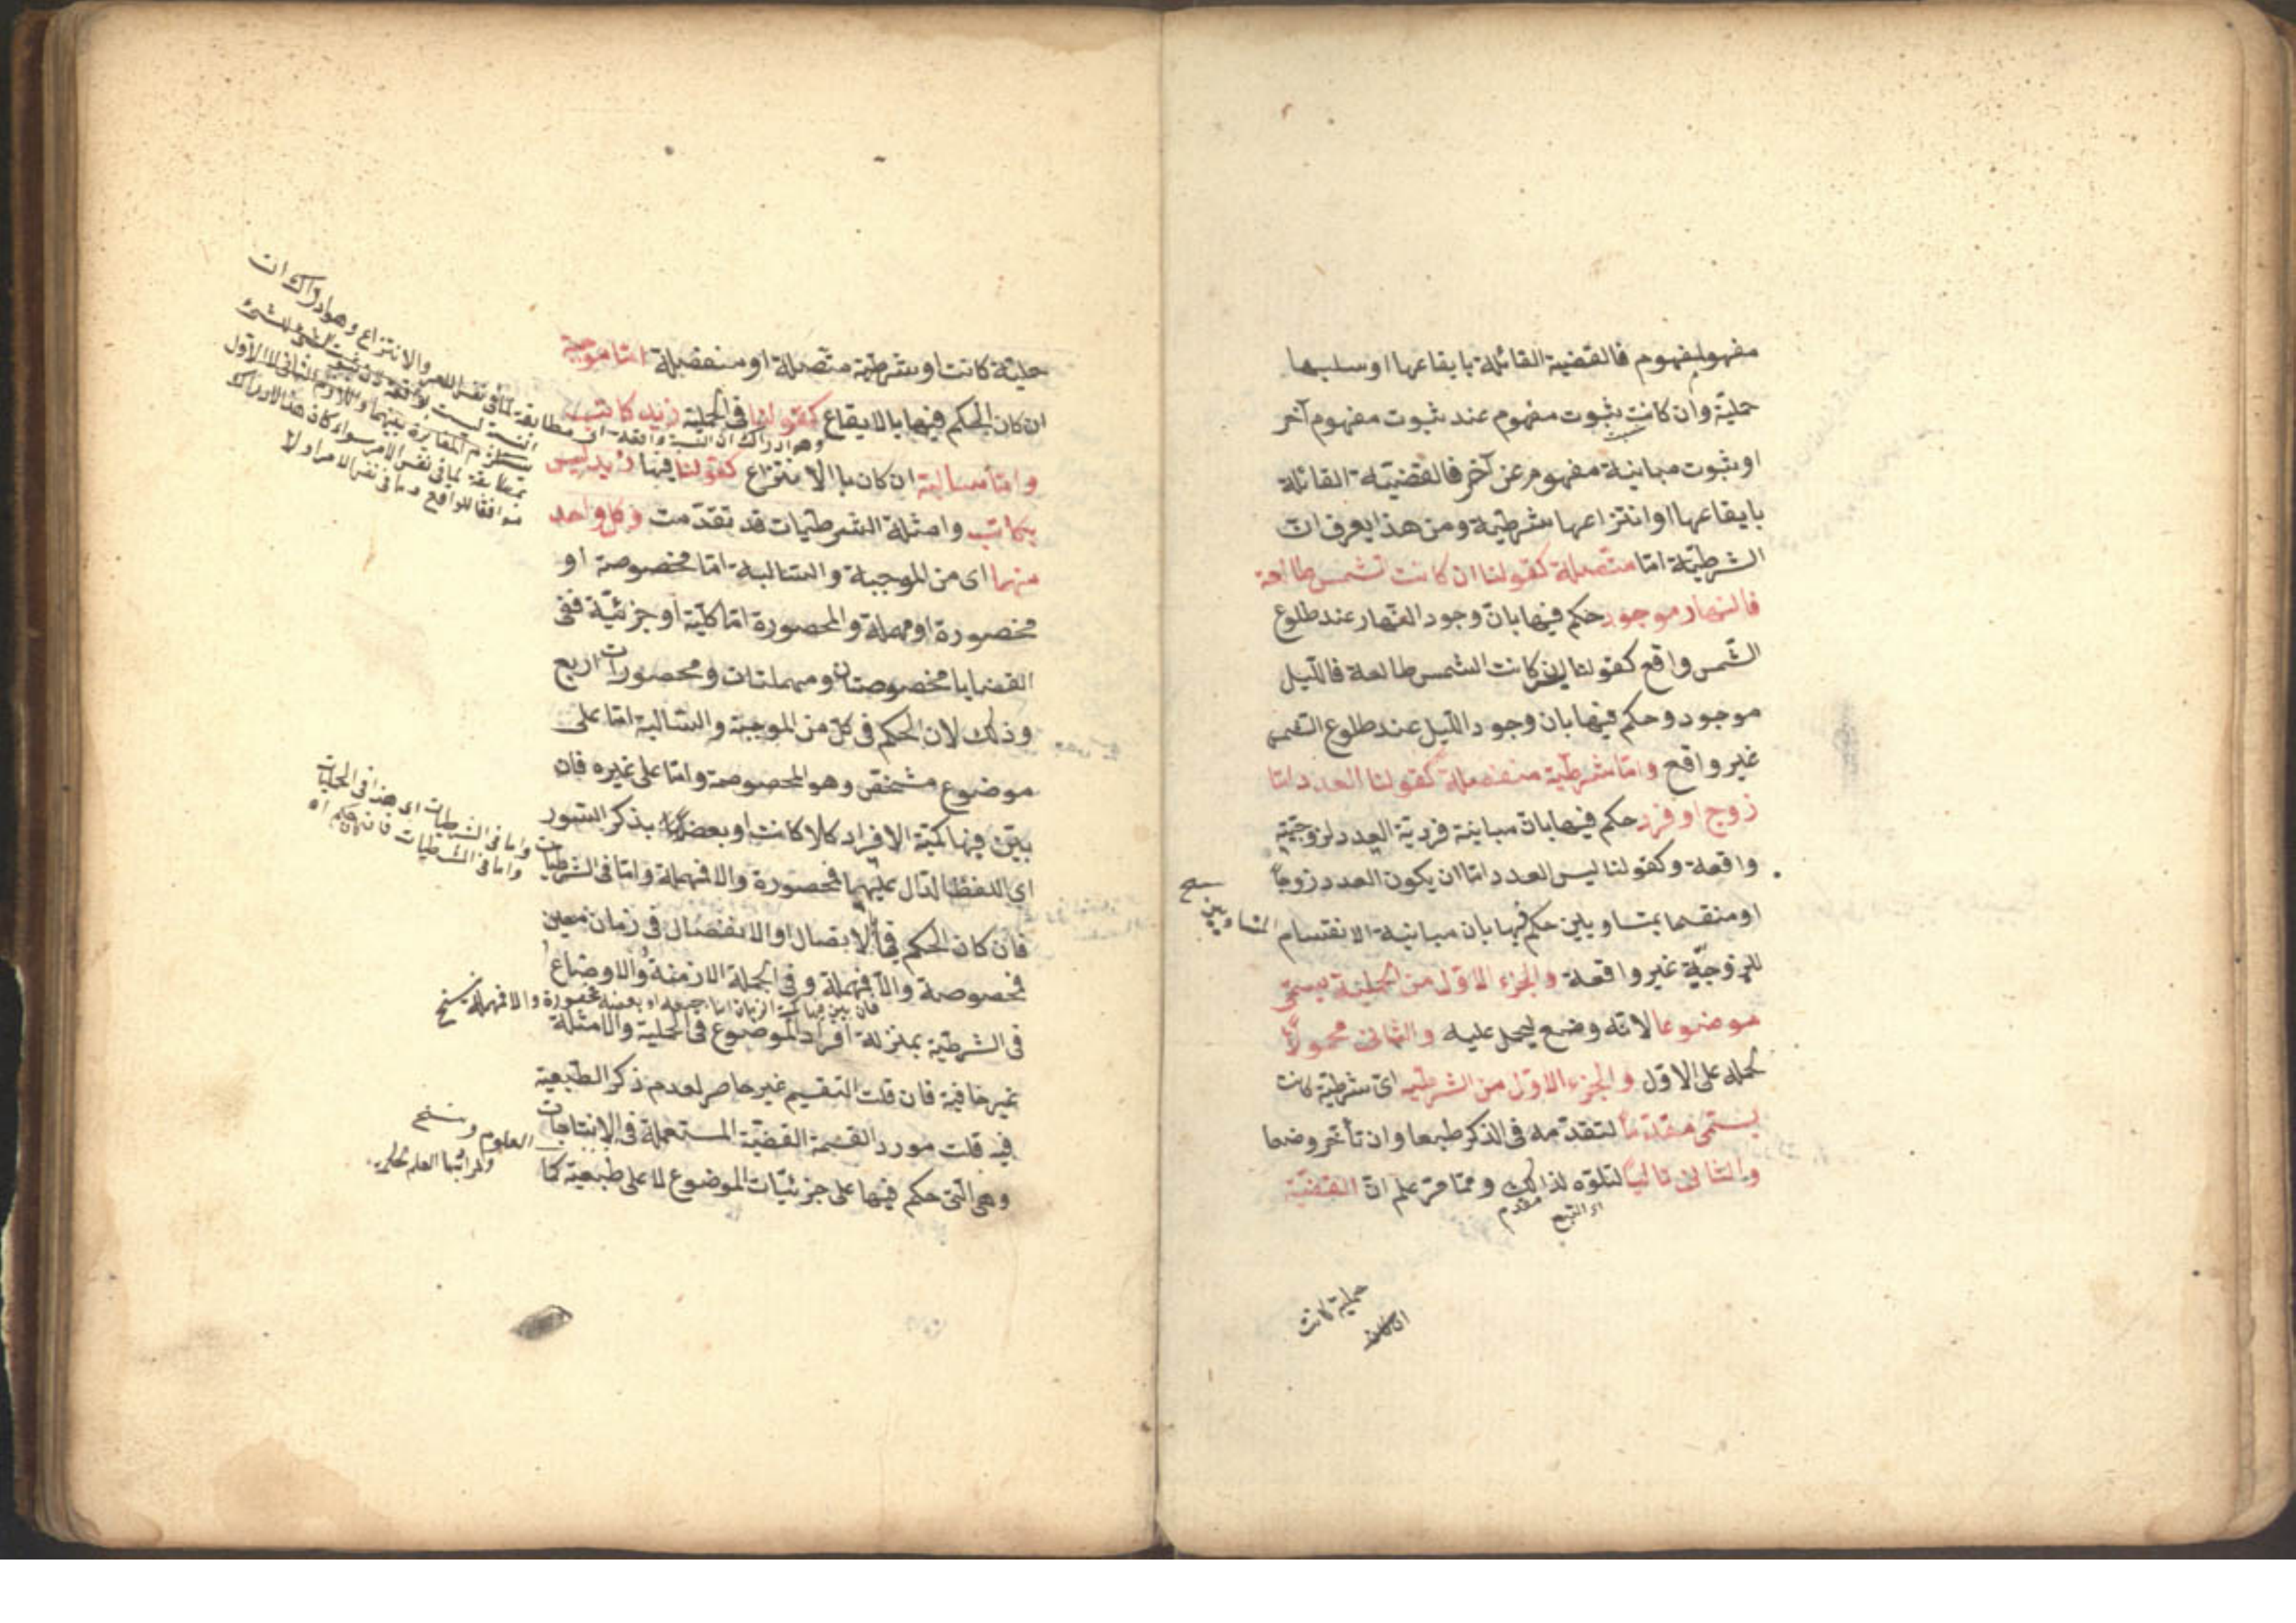 مفهوم لمفهوم فالقضية القائلة بايقاعها او سلبها
حملية وان كانت بثبوت مفهوم عند ثبوت مفهوم آخر
او بثبوت مباينة مفهوم عن آخر فالقضية القائلة
بايقاعها او انتزاعها شرطية ومن هذا يعرف ان
الشرطية اما متصلة كقولنا ان كانت الشمس طالعة
فالنهار موجود حكم فيها بان وجود النهار عند طلوع
الشمس واقع كقولنا ان كانت الشمس طالعة فالليل
موجود وحكم فيها بان وجود الليل عند طلوع الشمس
غير واقع واما شرطية منفصلة كقولنا العدد اما
زوج او فرد حكم فيها بان مباينة فردية العدد لزوجيته
واقعة وكقولنا ليس العدد اما ان يكون العدد زوجا
او منقسما بمتساويين حكم فيها بان مباينة الانقسام
للزوجية غير واقعة والجزء الاول من الحملية يسمى
موضوعا لانه وضع ليحمل عليه والثانى محمولا
لحمله على الاول والجزء الاول من الشرطية اى شرطية كانت
يسمى مقدما لتقدمه فى الذكر طبعا وان تأخر وضعا
والثانى تاليا لتلوه لذلك ومما مر علم ان القضية
حملية كانت
حملية كانت او شرطية متصلة او منفصلة اما موجبة
ان كان الحكم فيها بالايقاع كقولنا فى الحملية زيد كاتب
وهو ادراك ان النسبة واقعة
واما سالبة ان كان با الانتزاع كقولنا فيها زيد ليس
بكاتب وامثلة الشرطيات قد تقدمت وكل واحد
منهما اى من الموجبة والسالبة اما مخصوصة او
محصورة او مهملة والمحصورة اما كلية او جزئية ففى
القضايا مخصوصتان ومهملتان ومحصورات اربع
وذلك لان الحكم فى كل من الموجبة والسالبة اما على
موضوع مشخص وهو المخصوصة واما على غيره فان
بين فيها كمية الافراد كلا كانت او بعضا بذكر السور
اى اللفظ الدال عليهما فمحصورة والا فمهملة واما فى الشرطيات
فان كان الحكم فيها بالاتصال او الانفصال فى زمان معين
فمخصوصة والا فمهملة وفى الجملة الازمنة والاوضاع
فان بين فيها كمية الزمان اما جميعه او بعضه فمحصورة والا فمهملة نسخ
فى الشرطية بمنزلة افراد الموضوع فى الحملية والامثلة
غير خافية فان قلت التقسيم غير حاصر لعدم ذكر الطبيعية
فيه قلت مورد القسمة القضية المستعملة فى الانتاجات
وهى التى حكم فيها على جزئيات الموضوع لا على طبيعية كما
والانتزاع وهو ادراك ان
واما فى الشرطيات اى هذا فى الحمليات
العلوم نسخ